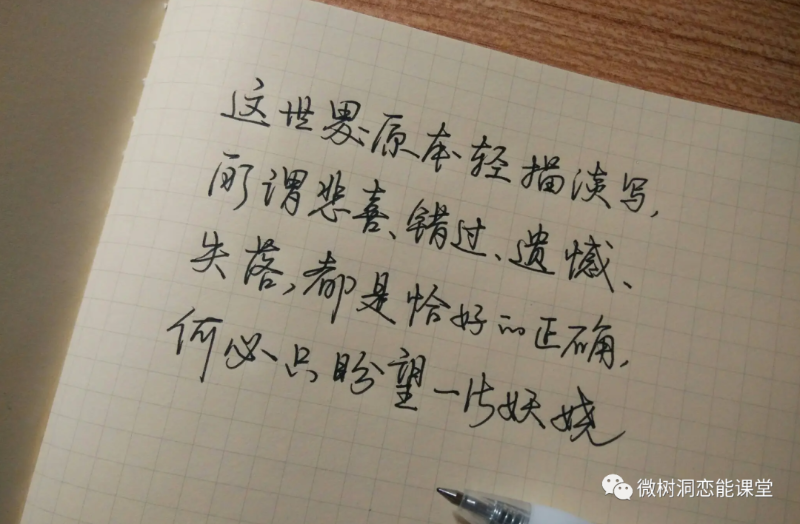 这世界原本轻描淡写,
所谓悲喜、错过、遗憾、
失落,都是恰好的正确,
何必只盼望一片妖娆
微树洞恋能课堂